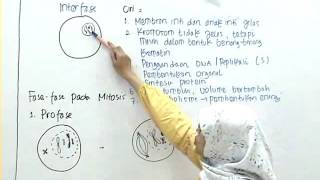 Interfase
Ciri =
1. Membran inti dan anak inti jelas
2. Kromosom tidak jelas, tetapi
masih dalam bentuk benang-benang
kromatin
Penggandaan DNA / Replikasi (S)
Pembentukan Organel
Sintesis protein
tumbuh, volume bertambah
7.
volume → pembentukan energi
Fase-fase pada Mitosis
1. Profase